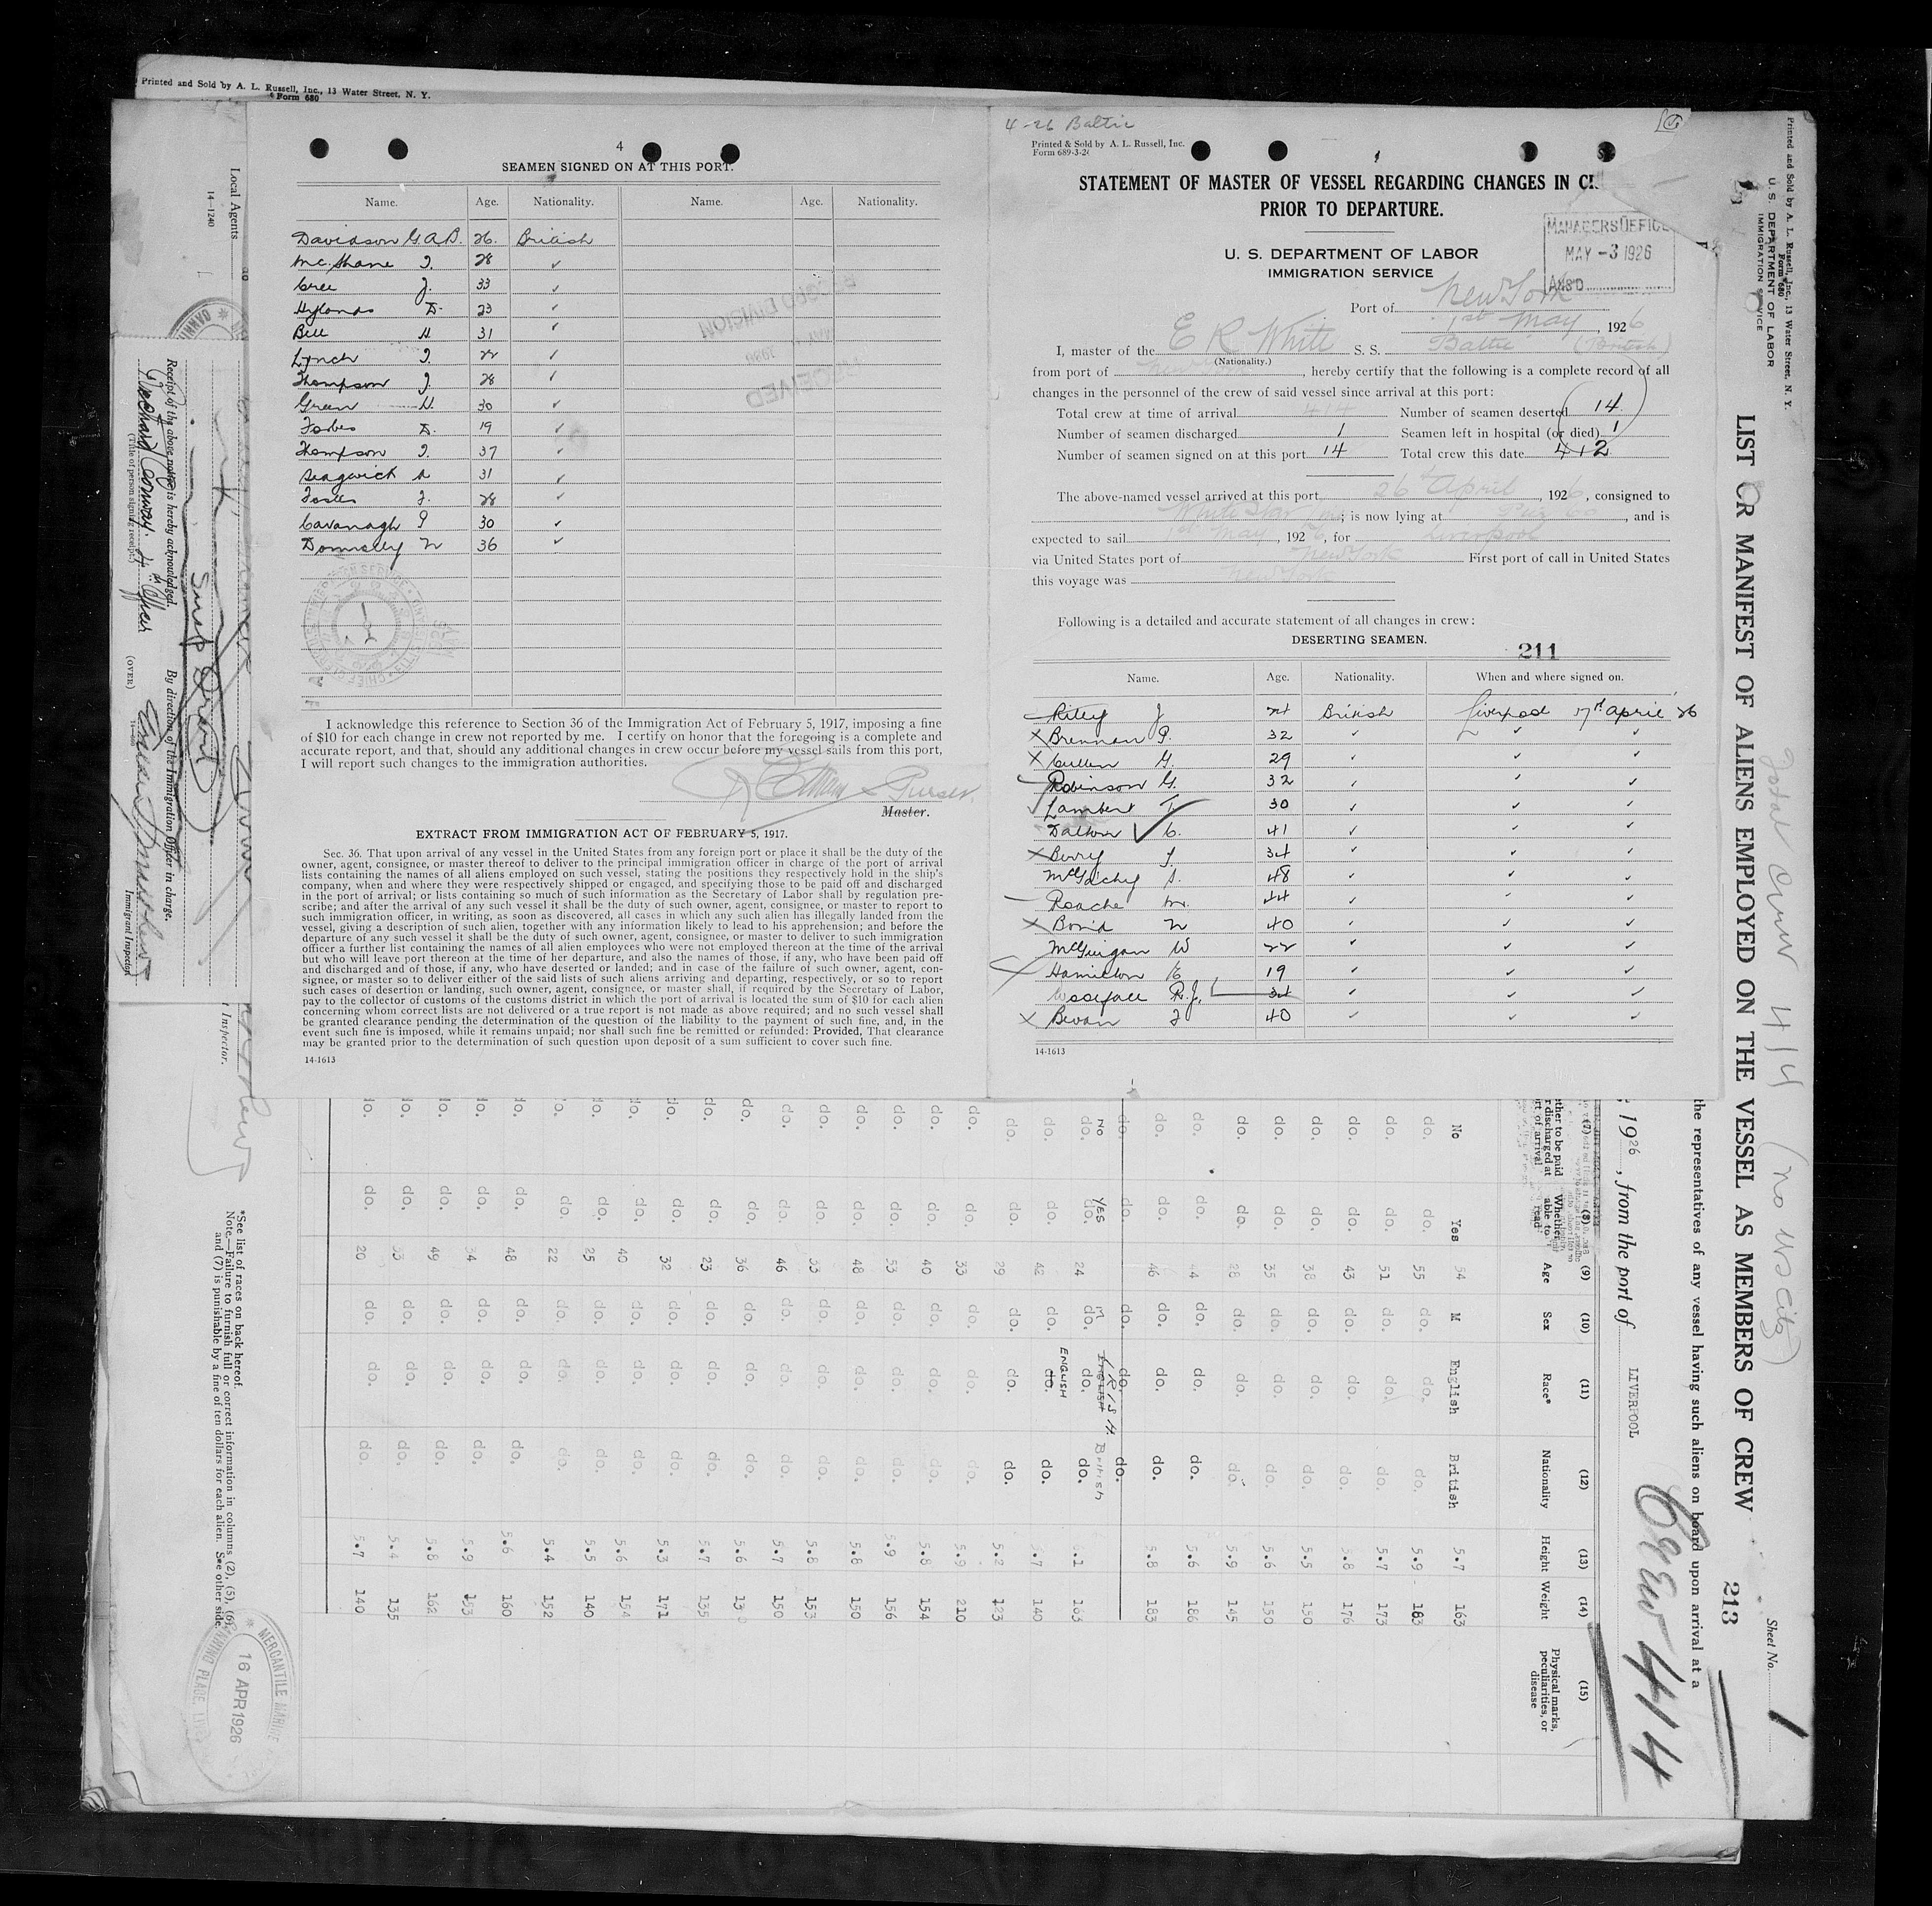 Printed and Sold by A. L. Russell, Inc., 13 Water Street, N. Y.
Form 680
4
SEAMEN SIGNED ON AT THIS PORT.
Name. Age. Nationality. Name. Age. Nationality.
Davidson G.A.B. 26. British
Mc.Shane T. 28 ✓
Cree J. 33 ✓
Hylands D. 23 ✓
Bell H. 31 ✓
Lynch T. 22 ✓
Thompson J. 28 ✓
Green H. 30 ✓
Forbes D. 19 ✓
Thompson T. 37 ✓
Sedgwick A 31 ✓
J. 28 ✓
Cavanagh P 30 ✓
36 ✓
I acknowledge this reference to Section 36 of the Immigration Act of February 5, 1917, imposing a fine
of $10 for each change in crew not reported by me. I certify on honor that the foregoing is a complete and
accurate report, and that, should any additional changes in crew occur before my vessel sails from this port,
I will report such changes to the immigration authorities.
Purser.
Master.
EXTRACT FROM IMMIGRATION ACT OF FEBRUARY 5, 1917.
Sec. 36. That upon arrival of any vessel in the United States from any foreign port or place it shall be the duty of the
owner, agent, consignee, or master thereof to deliver to the principal immigration officer in charge of the port of arrival
lists containing the names of all aliens employed on such vessel, stating the positions they respectively hold in the ship's
company, when and where they were respectively shipped or engaged, and specifying those to be paid off and discharged
in the port of arrival; or lists containing so much of such information as the Secretary of Labor shall by regulation pre-
scribe; and after the arrival of any such vessel it shall be the duty of such owner, agent, consignee, or master to report to
such immigration officer, in writing, as soon as discovered, all cases in which any such alien has illegally landed from the
vessel, giving a description of such alien, together with any information likely to lead to his apprehension; and before the
departure of any such vessel it shall be the duty of such owner, agent, consignee, or master to deliver to such immigration
officer a further list containing the names of all alien employees who were not employed thereon at the time of the arrival
but who will leave port thereon at the time of her departure, and also the names of those, if any, who have been paid off
and discharged and of those, if any, who have deserted or landed; and in case of the failure of such owner, agent, con-
signee, or master so to deliver either of the said lists of such aliens arriving and departing, respectively, or so to report
such cases of desertion or landing, such owner, agent, consignee, or master shall, if required by the Secretary of Labor,
pay to the collector of customs of the customs district in which the port of arrival is located the sum of $10 for each alien
concerning whom correct lists are not delivered or a true report is not made as above required; and no such vessel shall
be granted clearance pending the determination of the question of the liability to the payment of such fine, and, in the
event such fine is imposed, while it remains unpaid; nor shall such fine be remitted or refunded: Provided, That clearance
may be granted prior to the determination of such question upon deposit of a sum sufficient to cover such fine.
14-1613
4-26 Baltic
Printed & Sold by A. L. Russell, Inc.
Form 689-3-26
STATEMENT OF MASTER OF VESSEL REGARDING CHANGES IN
PRIOR TO DEPARTURE.
U. S. DEPARTMENT OF LABOR
IMMIGRATION SERVICE
MANAGERS OFFICE
MAY -3 1926
ANS'D
Port of New York
1st May, 1926
I, master of the E R White S. S. Baltic (British)
(Nationality.)
from port of New York, hereby certify that the following is a complete record of all
changes in the personnel of the crew of said vessel since arrival at this port:
Total crew at time of arrival 414 Number of seamen deserted 14
Number of seamen discharged 1 Seamen left in hospital (or died) 1
Number of seamen signed on at this port 14 Total crew this date 412
The above-named vessel arrived at this port 26th April, 1926, consigned to
White Star Line; is now lying at Pier 60, and is
expected to sail 1st May, 1926, for Liverpool
via United States port of New York First port of call in United States
this voyage was New York
Following is a detailed and accurate statement of all changes in crew:
DESERTING SEAMEN.
211
Name. Age. Nationality. When and where signed on.
Riley J 24 British Liverpool 17th April 26
X Brennan P. 32 ✓ ✓ ✓
X Cullen G. 29 ✓ ✓ ✓
Robinson G. 32 ✓ ✓ ✓
Lambert T. 30 ✓ ✓ ✓
Dalton C. 41 ✓ ✓ ✓
X Berry J. 34 ✓ ✓ ✓
48 ✓ ✓ ✓
Roache M. 44 ✓ ✓ ✓
X 40 ✓ ✓ ✓
McGuigan W 22 ✓ ✓ ✓
Hamilton E 19 ✓ ✓ ✓
R.J. 34 ✓ ✓ ✓
X Bevan J 40 ✓ ✓ ✓
14-1613
Local Agents
14-1240
Receipt of the above notice is hereby acknowledged.
(Title of person signing receipt.)
Conway. 4th Officer
By direction of the Immigration Officer in charge.
(OVER)
Immigrant Inspector
Inspector.
Printed and Sold by A. L. Russell, Inc., 13 Water Street, N. Y.
Form 680
U. S. DEPARTMENT OF LABOR
IMMIGRATION SERVICE
Sheet No. 1
Total crew 414 (no US citz)
LIST OR MANIFEST OF ALIENS EMPLOYED ON THE VESSEL AS MEMBERS OF CREW 213
the representatives of any vessel having such aliens on board upon arrival at a
, 1926, from the port of LIVERPOOL
Crew 414
(7) (8) (9) (10) (11) (12) (13) (14) (15)
Whether able to read Age Sex Race* Nationality Height Weight Physical marks, peculiarities, or disease
No Yes 54 M English British 5.7 163
do. do. 55 do. do. do. 5.9 183
do. do. 51 do. do. do. 5.7 173
do. do. 43 do. do. do. 5.8 176
do. do. 38 do. do. do. 5.5 150
do. do. 35 do. do. do. 5.6 150
do. do. 28 do. do. do. 5.9 145
do. do. 44 do. do. do. 5.6 186
do. do. 46 do. do. do. 5.8 183
do. do. do. do. do.
NO YES M ENGLISH IRISH British
do. do. 24 do. do. do. 6.1 163
do. do. 42 do. do. ENGLISH do. 5.7 140
do. do. 29 do. do. do. 5.8 123
do. do. 33 do. do. do. 5.9 210
do. do. 40 do. do. do. 5.8 154
do. do. 53 do. do. do. 5.9 156
do. do. 48 do. do. do. 5.8 150
do. do. 33 do. do. do. 5.8 153
do. do. 46 do. do. do. 5.7 150
do. do. 36 do. do. do. 5.6 130
do. do. 23 do. do. do. 5.7 135
do. do. 32 do. do. do. 5.3 171
do. do. 40 do. do. do. 5.6 154
do. do. 25 do. do. do. 5.5 140
do. do. 22 do. do. do. 5.4 152
do. do. 48 do. do. do. 5.6 160
do. do. 34 do. do. do. 5.9 153
do. do. 49 do. do. do. 5.8 162
do. do. 33 do. do. do. 5.4 135
do. do. 20 do. do. do. 5.7 140
*See list of races on back hereof.
Note.—Failure to furnish full or correct information in columns (2), (5), (6),
and (7) is punishable by a fine of ten dollars for each alien. See other side.
MERCANTILE MARINE
16 APR 1926
CANNING PLACE